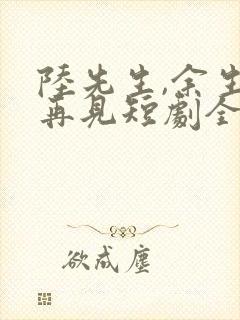 陸先生,余生
再見短劇全
欲成塵